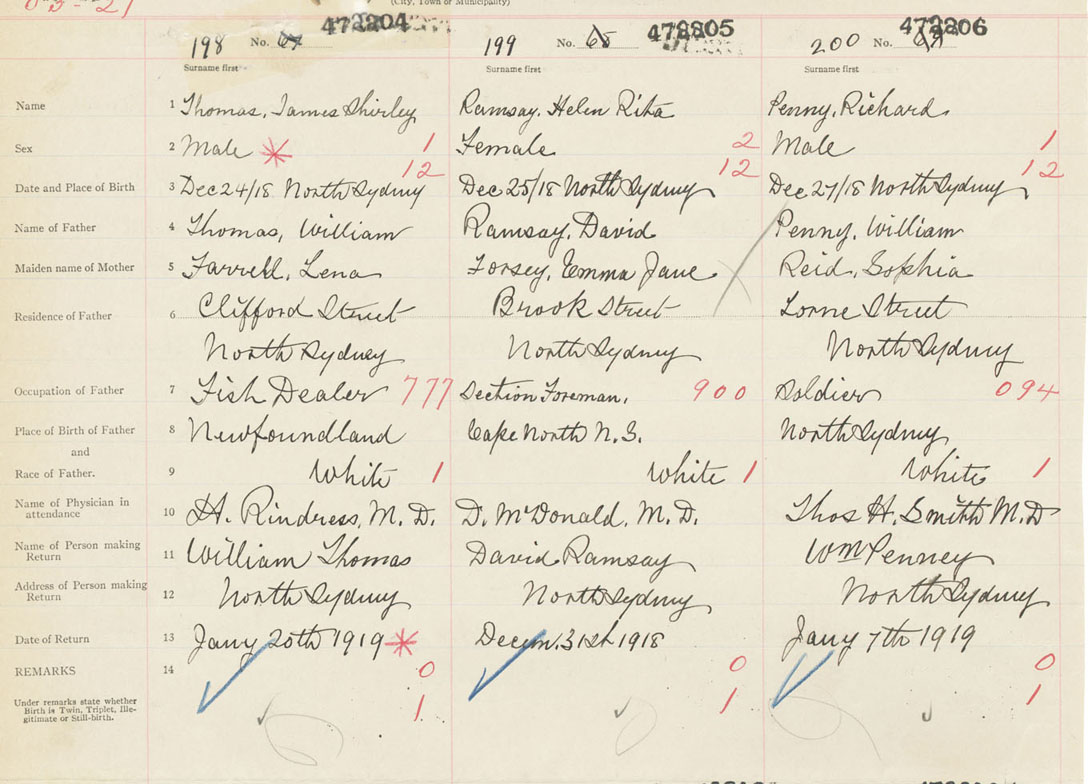 (City, Town or Municipality)
472204 472805 472806
198 No. 199 No. 65 200 No.
Surname first Surname first Surname first
Name 1 Thomas, James Shirley Ramsay, Helen Rita Penny, Richard
Sex 2 Male * 1 Female 2 Male 1
12 12 12
Date and Place of Birth 3 Dec 24/18 North Sydney Dec 25/18 North Sydney Dec 27/18 North Sydney
Name of Father 4 Thomas, William Ramsay, David Penny, William
Maiden name of Mother 5 Farrell, Lena Forsey, Emma Jane Reid, Sophia
Residence of Father 6 Clifford Street Brook Street Lorne Street
North Sydney North Sydney North Sydney
Occupation of Father 7 Fish Dealer 777 Section Foreman, 900 Soldier 094
Place of Birth of Father 8 Newfoundland Cape North N.S. North Sydney
and
Race of Father. 9 White 1 White 1 White 1
Name of Physician in attendance 10 H. Rindress, M.D. D. McDonald, M.D. Thos H. Smith M.D
Name of Person making Return 11 William Thomas David Ramsay Wm Penney
Address of Person making Return 12 North Sydney North Sydney North Sydney
Date of Return 13 Jany 20th 1919 * Decem. 31st 1918 Jany 7th 1919
REMARKS 14 0 0 0
Under remarks state whether Birth is Twin, Triplet, Ille-
gitimate or Still-birth. 1 1 1